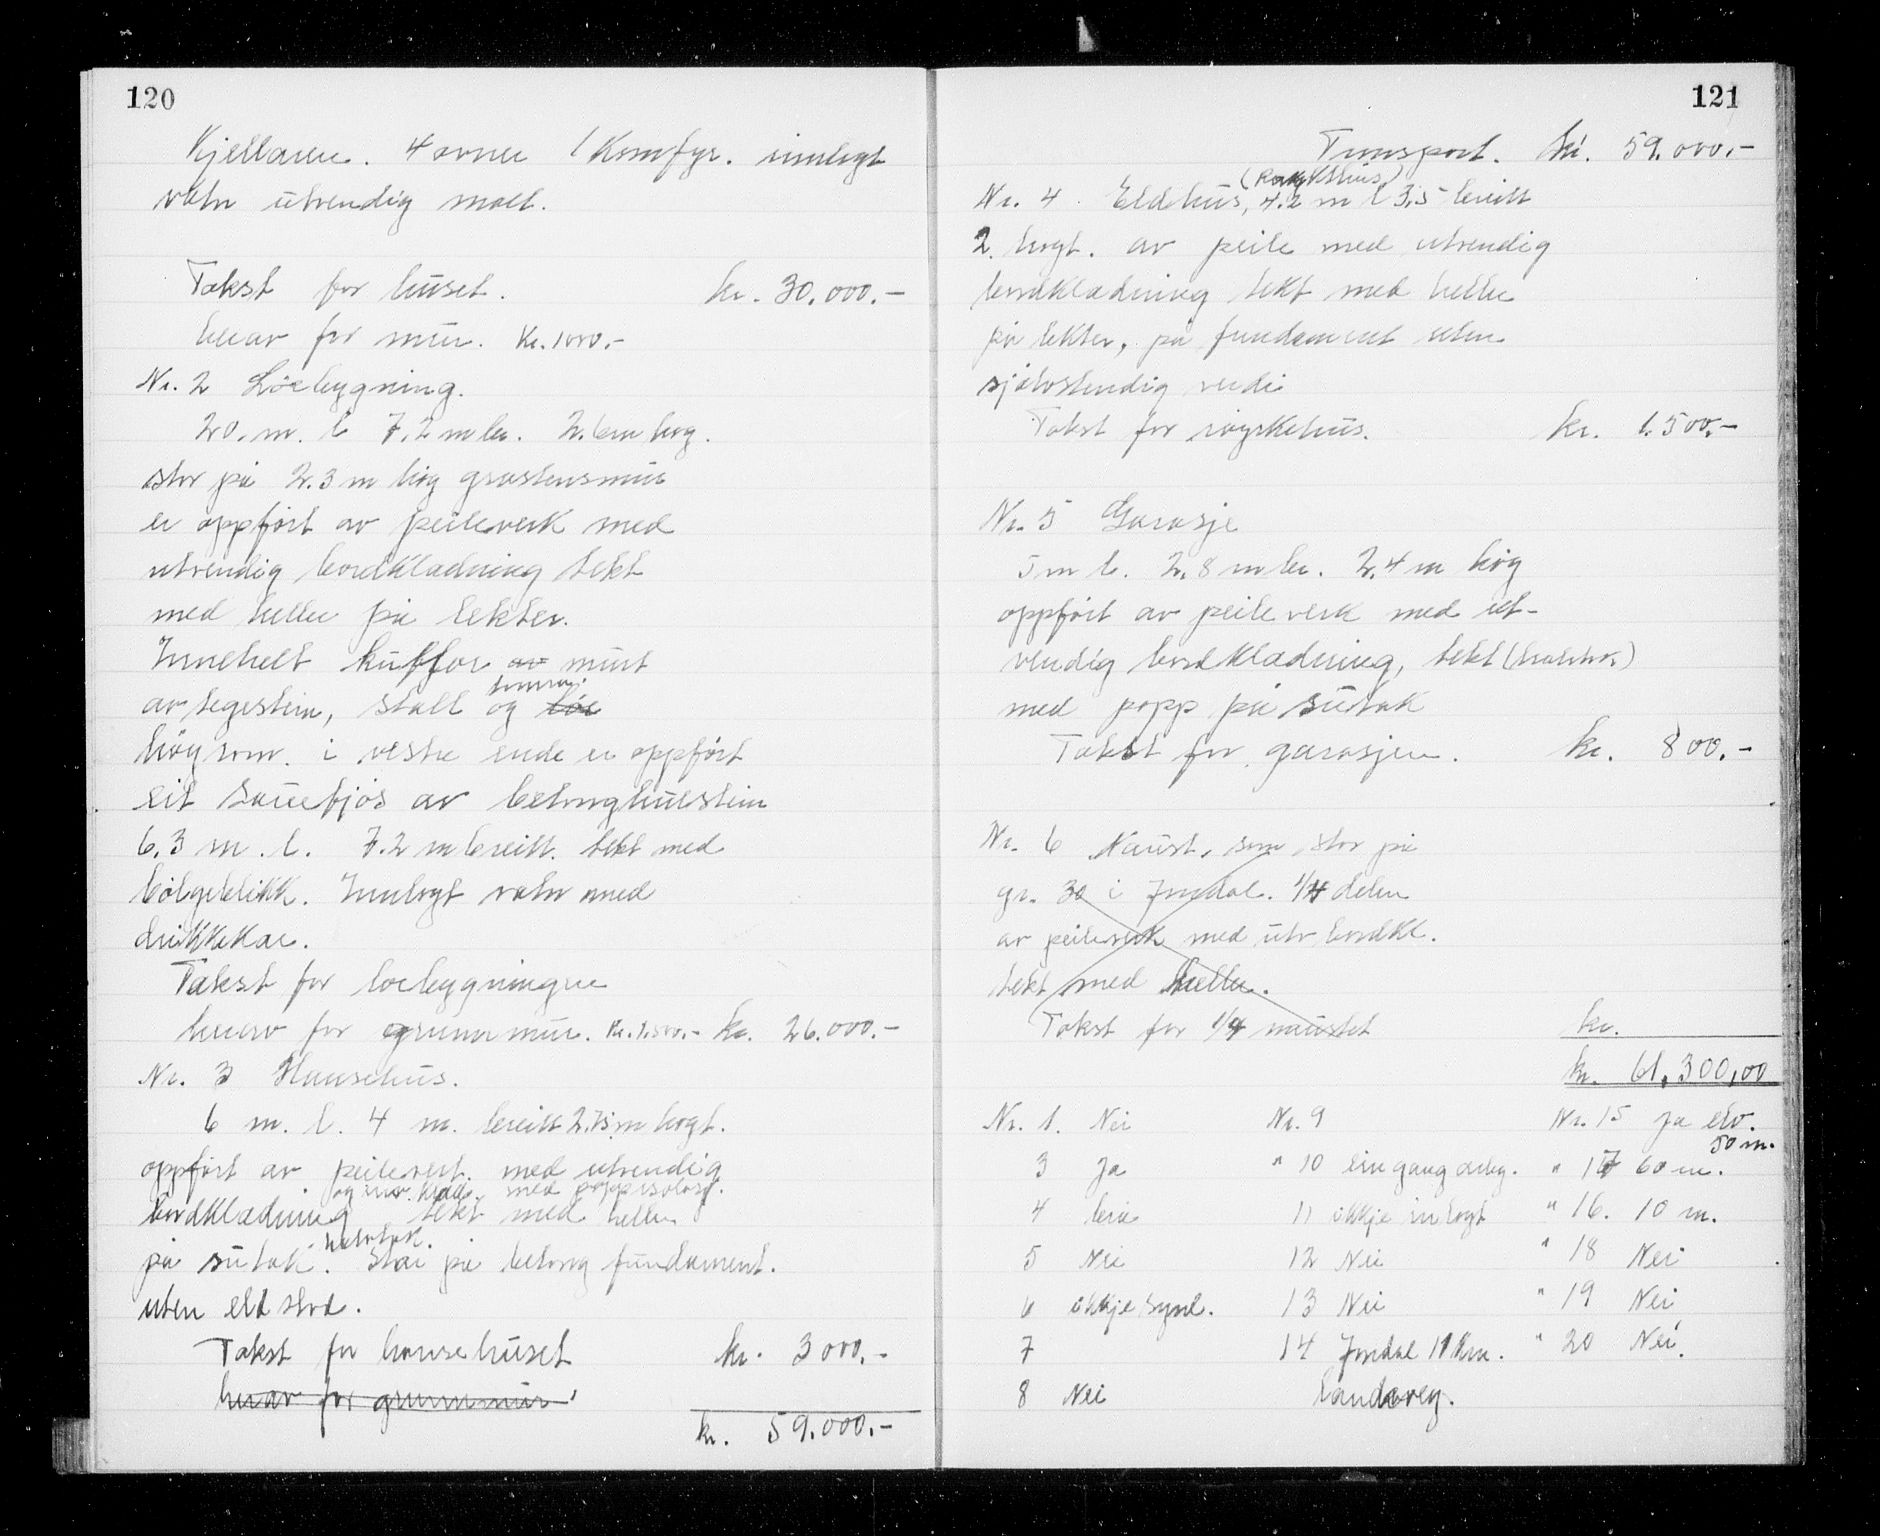 120
Kjellaren. 4 ovner 1 Komfyr. innlagt
vatn utvendig malt.
Takst for huset. kr. 30.000.-
herav for mur. Kr. 1000.-
Nr. 2 Löebygning.
20. m. l. 7.2 m br. 2.6m høg.
står på 2.3 m høg gråsteinsmur
er oppført av peileverk med
utvendig bordkledning tekt
med heller på lekter.
Innehelt kufjor av murt
av tegestein, stall og löe
högrom. i vestre ende er oppført
eit sauefjøs av betonghulstein
6.3 m. l. 7.2 m breitt. tekt med
bølgeblikk. Innlagt vatn med
drikkekar.
Takst for löebygningen
herav for grunnmur. Kr. 1.500.- kr. 26.000.-
Nr. 3 Hønsehus.
6 m. l. 4 m. breitt 2.75 m høgt.
oppført av peileverk. med utvendig
og inv. kledd. med pappisolasj.
bordkledning tekt med heller
halvtak.
på sutak. Står på betong fundament.
uten eldstad.
Takst for hønsehuset kr. 3000.-
herav for grunnmur
kr. 59.000.-
121
Transport. kr. 59.000.-
Nr. 4. Eldhus, 4.2 m l 3.5 breitt
2. høgt. av peile med utvendig
bordkledning tekt med heller
på lekter, på fundament uten
sjølvstendig verdi
Takst for røykehus. kr. 1.500.-
Nr. 5 Garasje
5 m l. 2.8 m br. 2.4 m høg
oppført av peileverk med ut-
vendig bordkledning, tekt (halvtak)
med papp på sutak
Takst for garasjen. kr. 800.-
Nr. 6 Naust, som står på
gr. 30 i Jondal. 1/4 delen
av peileverk med utv bordkl.
tekt med heller.
Takst for 1/4 naustet kr.
kr. 61.300,00
Nr. 1. Nei Nr. 9 Nr. 15 ja elv.
50 m.
3 Ja " 10 ein gang årleg. " 17 60 m.
4 bra 11 ikkje inlagt " 16. 10 m.
5 Nei 12 Nei " 18 Nei
6 ikkje synl. 13 Nei " 19 Nei
7 14 Jondal 11 km. " 20 Nei.
8 Nei landaveg.